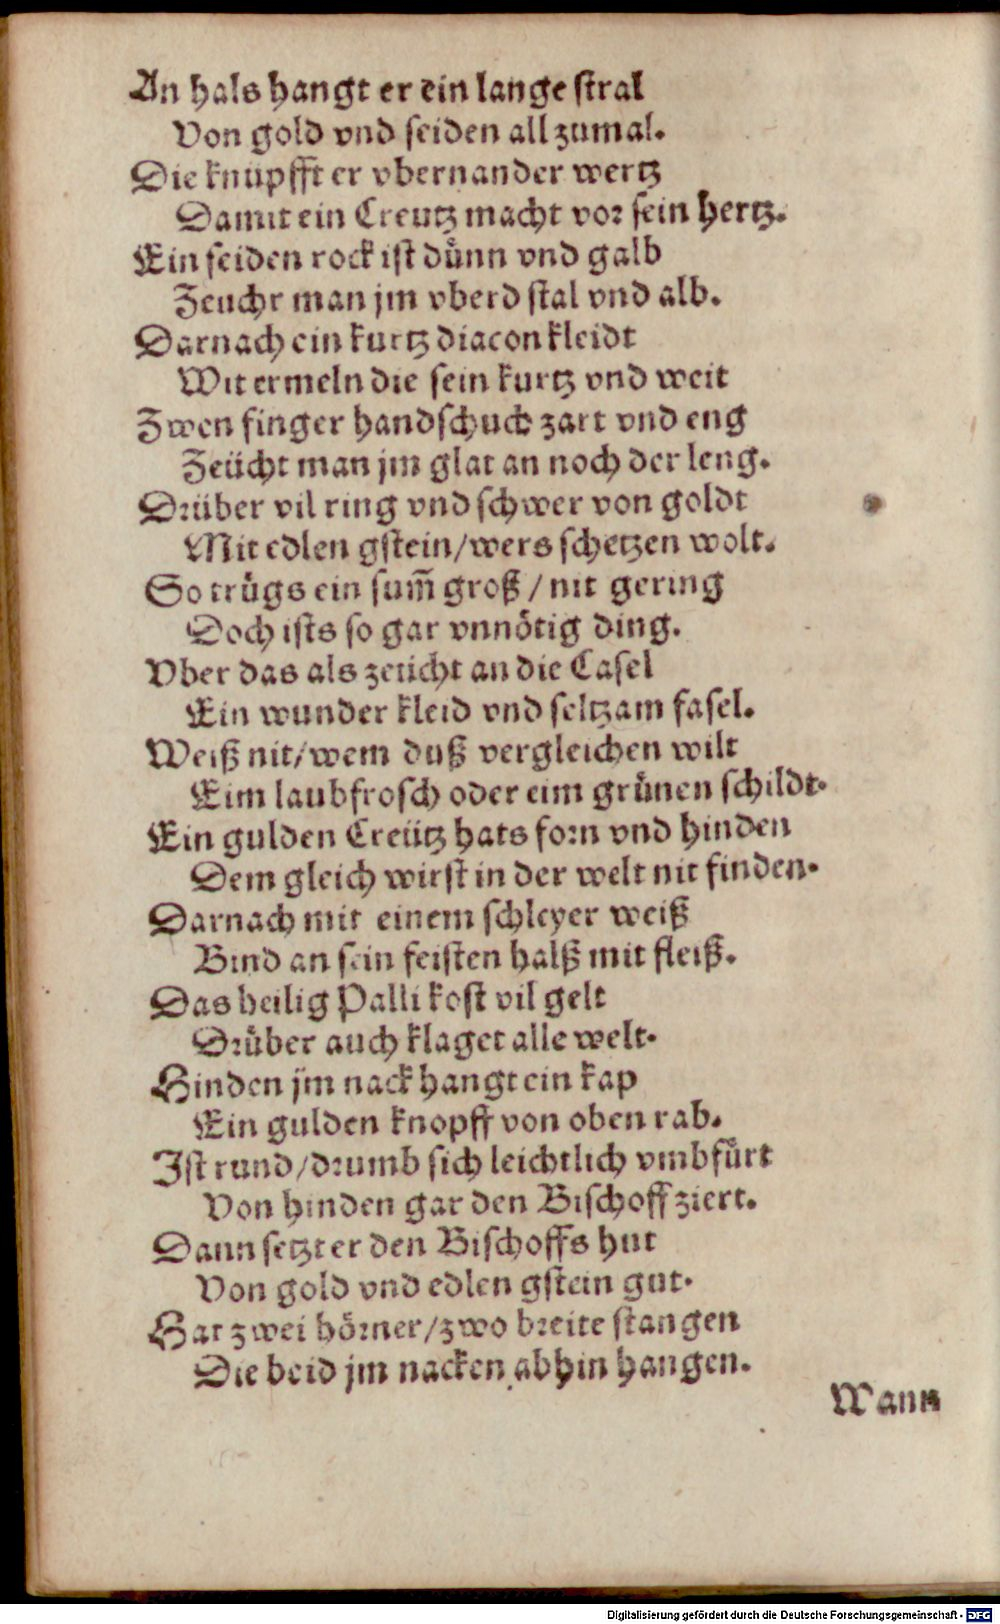 An hals hangt er ein lange stral
Von gold vnd seiden all zumal.
Die knüpfft er vbernander wertz
Damit ein Creutz macht vor sein hertz.
Ein seiden rock ist dünn vnd galb
Zeucht man jm vberd stal vnd alb.
Darnach ein kurtz diacon kleidt
Mit ermeln die sein kurtz vnd weit
Zwen finger handschuch zart vnd eng
Zeücht man jm glat an noch der leng.
Drüber vil ring vnd schwer von goldt
Mit edlen gstein/wers schetzen wolt.
So trügs ein sum̃ groß / nit gering
Doch ists so gar vnnötig ding.
Vber das als zeücht an die Casel
Ein wunder kleid vnd seltzam fasel.
Weiß nit/wem duß vergleichen wilt
Eim laubfrosch oder eim grünen schildt.
Ein gulden Creütz hats forn vnd hinden
Dem gleich wirst in der welt nit finden.
Darnach mit einem schleyer weiß
Bind an sein feisten halß mit fleiß.
Das heilig Palli kost vil gelt
Drüber auch klaget alle welt.
Hinden jm nack hangt ein kap
Ein gulden knopff von oben rab.
Ist rund/drumb sich leichtlich vmbfürt
Von hinden gar den Bischoff ziert.
Dann setzt er den Bischoffs hut
Von gold vnd edlen gstein gut.
Hat zwei hörner/zwo breite stangen
Die beid jm nacken abhin hangen.
Wann
Digitalisierung gefördert durch die Deutsche Forschungsgemeinschaft - DFG